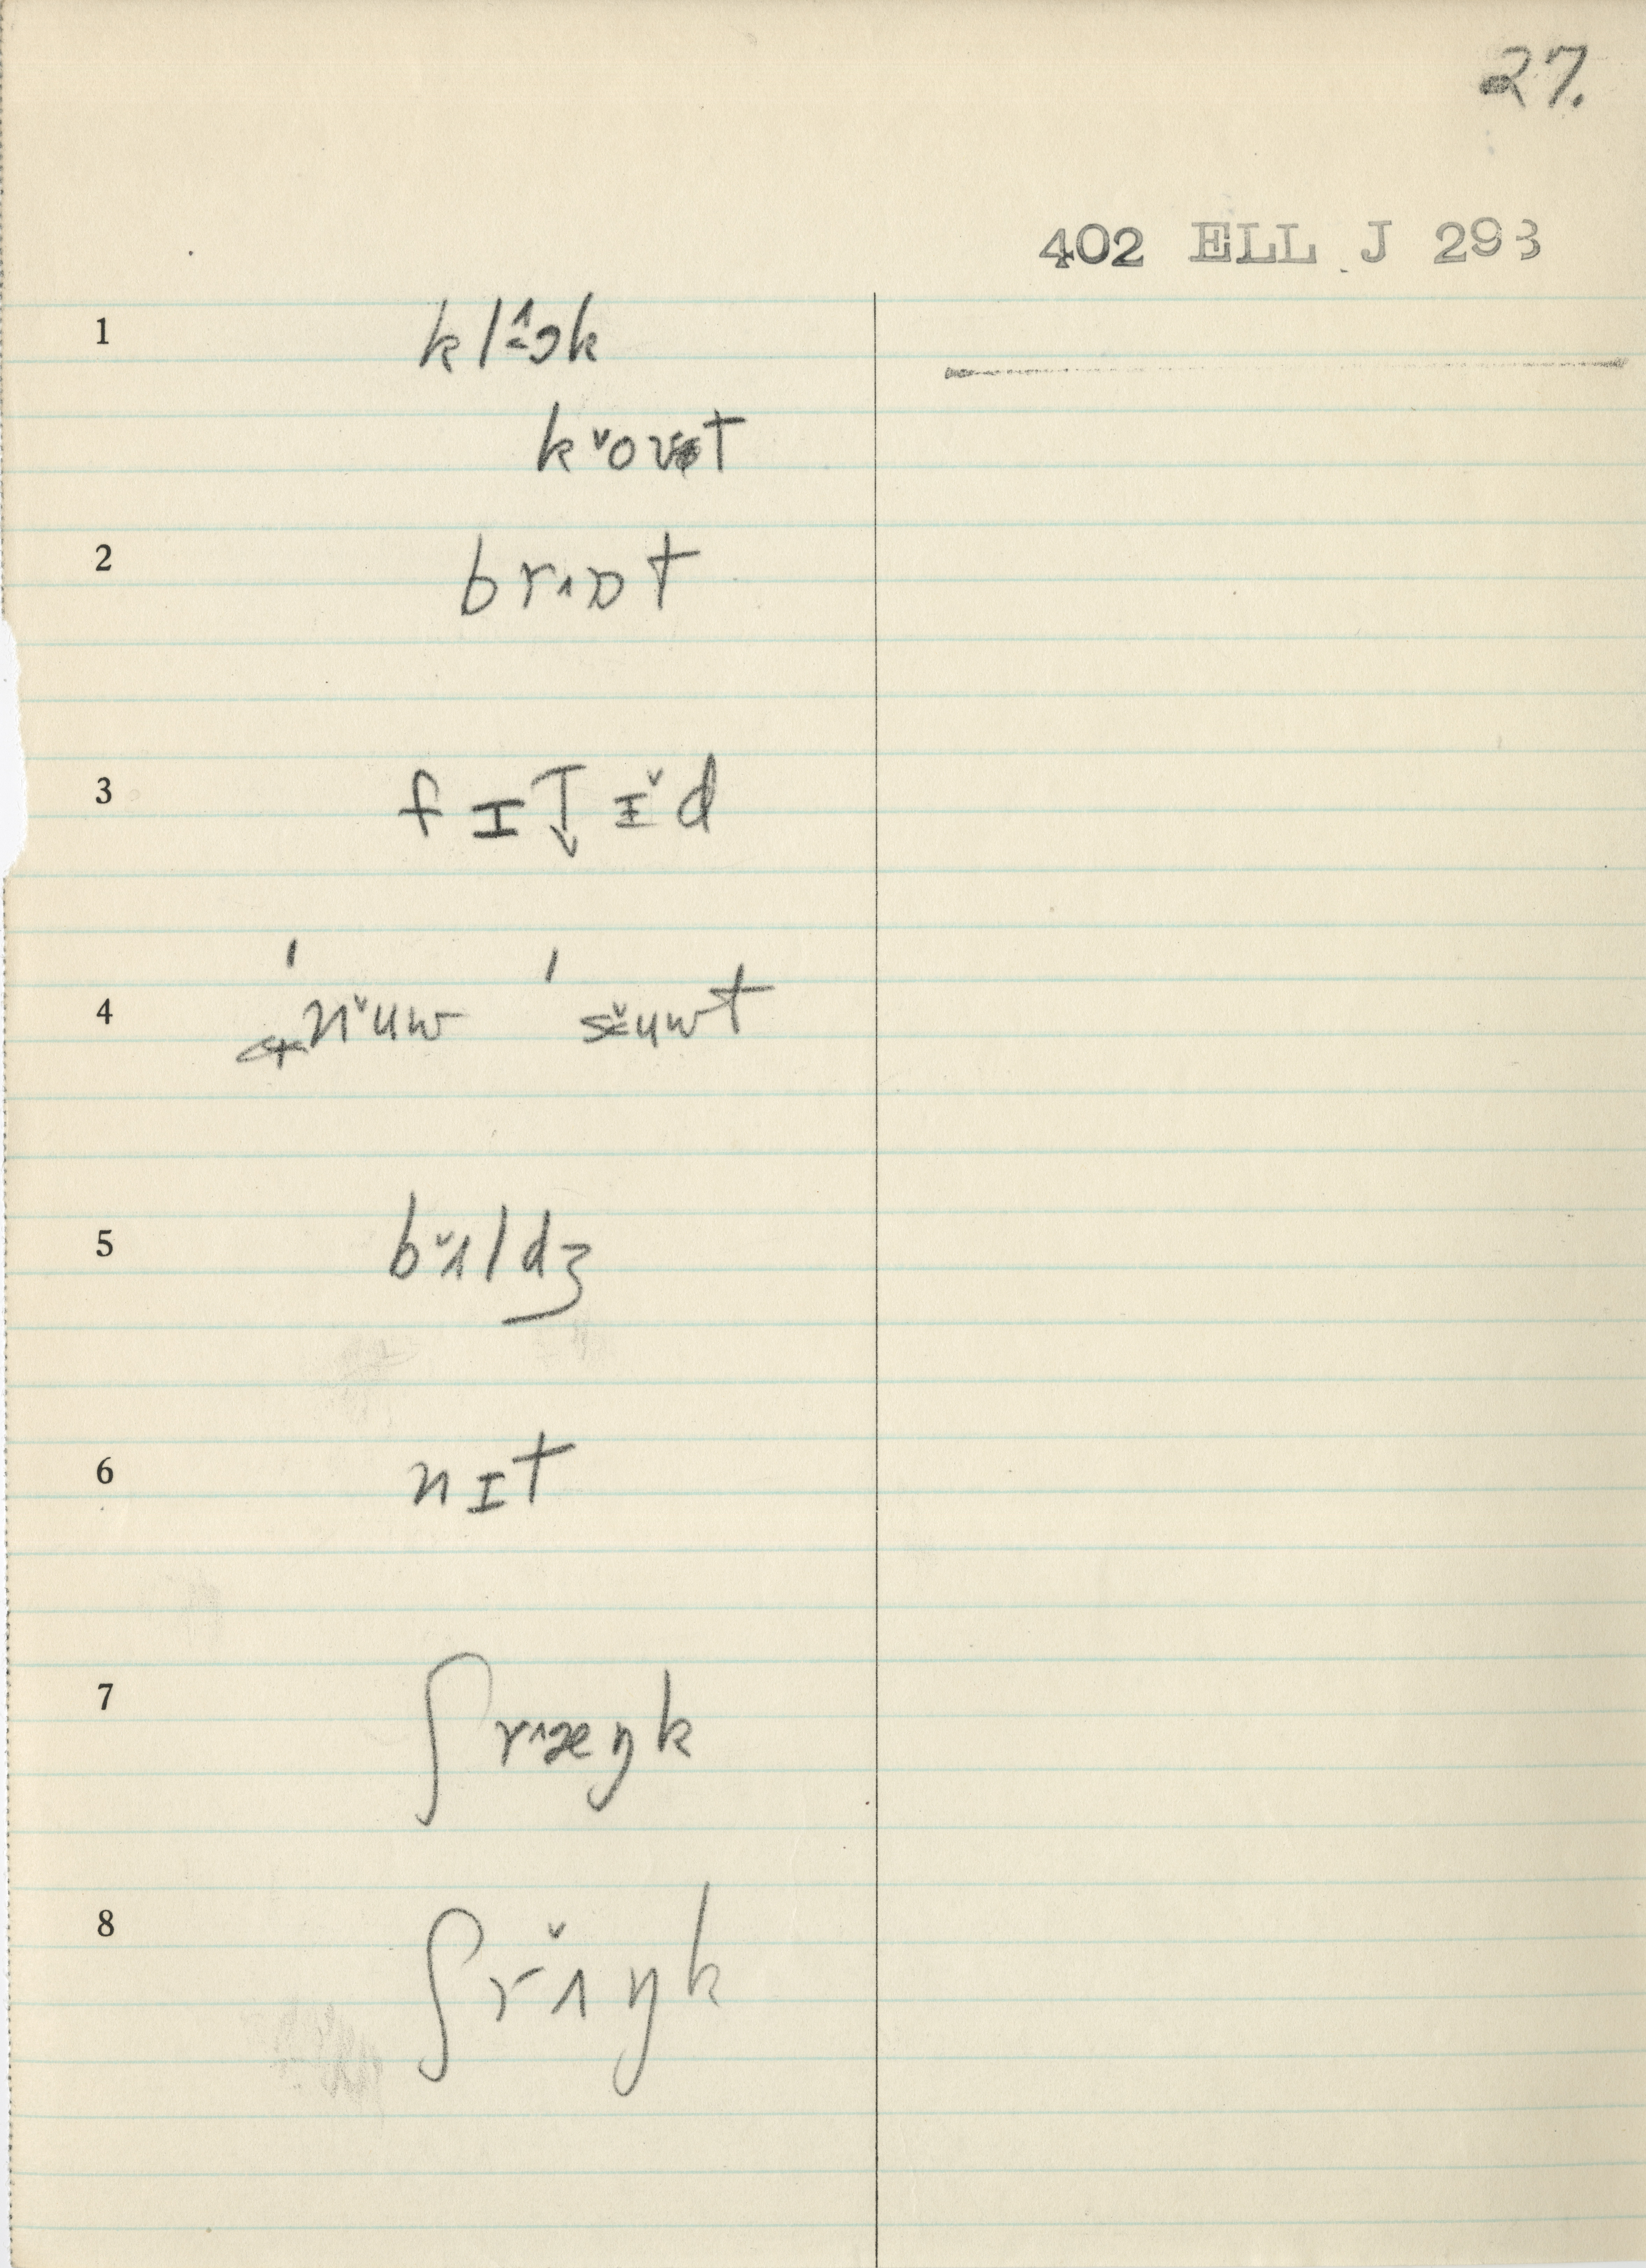 27.
402 ELL J 293
1 kl˄ɔk
k˅ovɐt
2 br˄ɒt
3 fɪt̬ɪ˅d
4 ˈn˅uw ˈs˅uwt
5 b˅ʌldʒ
6 nɪt
7 ʃr˄æŋk
8 ʃr˅ʌŋk